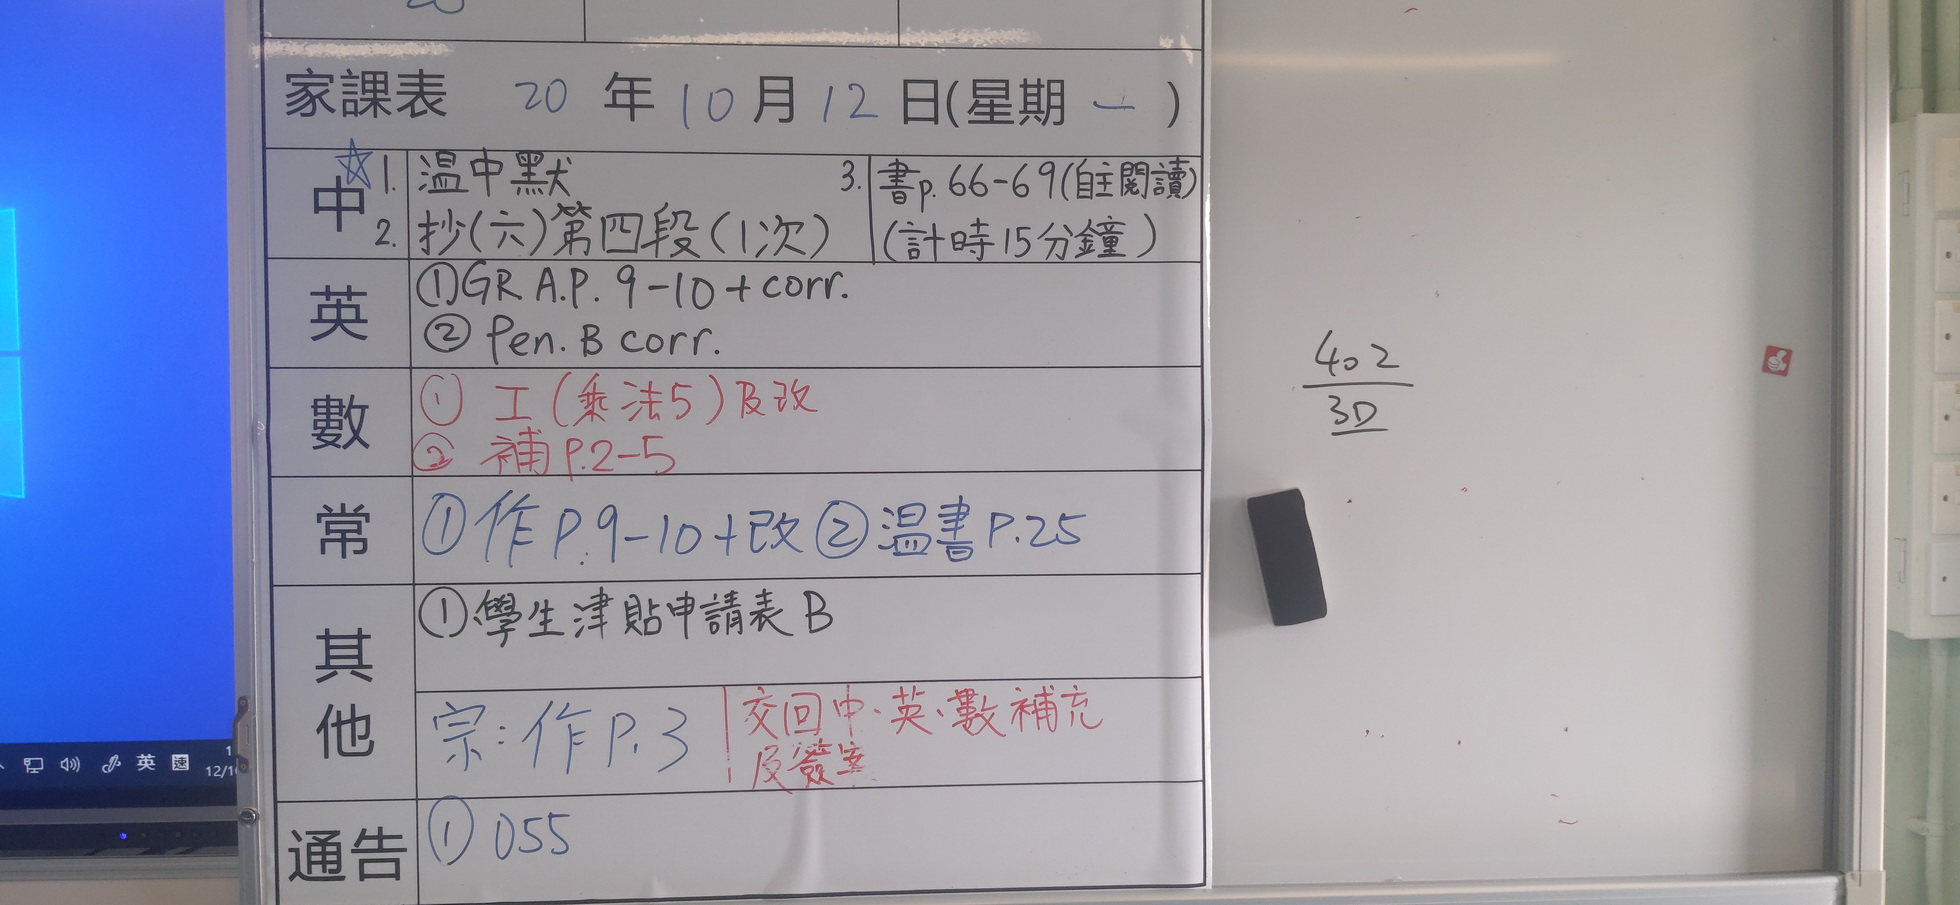 家課表 20 年 10 月 12 日(星期 一 )
中
☆1. 溫中默
2. 抄(六)第四段(1次)
3. 書p.66-69(自主閱讀)
(計時15分鐘)
英
①GR A.P. 9-10+corr.
② Pen. B corr.
數
① 工(乘法5)及改
② 補P.2-5
常
①作P.9-10+改②溫書P.25
其他
①學生津貼申請表B
宗:作P.3
交回中、英、數補充
及
通告
①055
402
3D
英 速
12/1